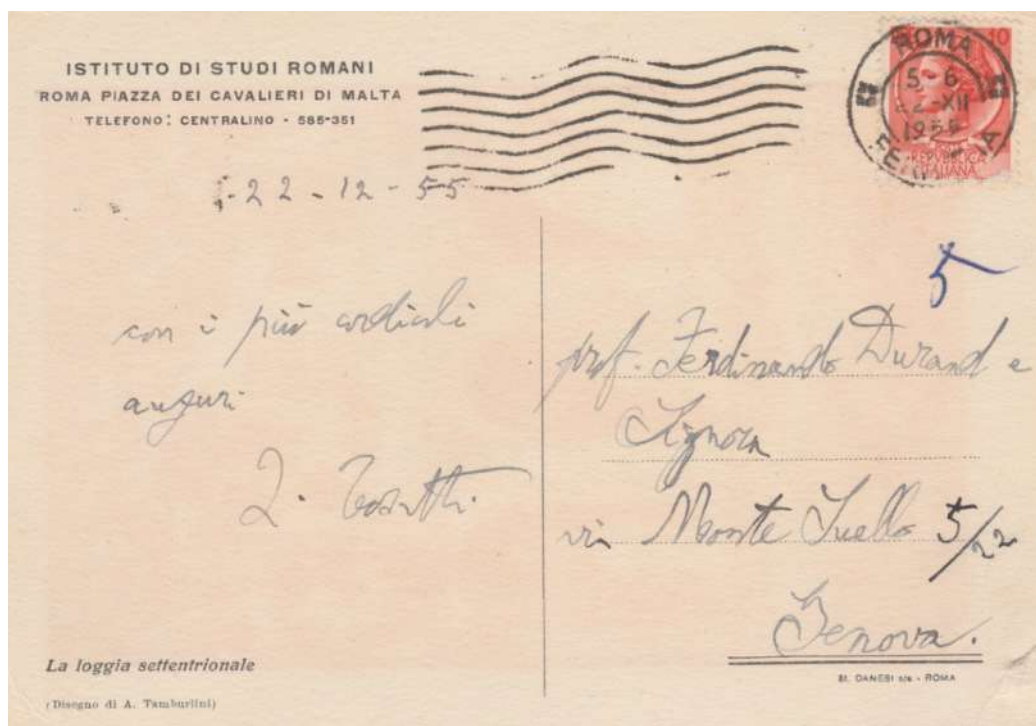 ISTITUTO DI STUDI ROMANI
ROMA PIAZZA DEI CAVALIERI DI MALTA
TELEFONO: CENTRALINO - 585-351
10
ROMA
5-6
22-XII
1955
REPUBBLICA
ITALIANA
22-12-55
5
con i più cordiali
auguri
prof. Ferdinando Durand e
Signora
via Monte Suello 5/22
Genova.
La loggia settentrionale
(Disegno di A. Tamburlini)
St. DANESI s/a - ROMA